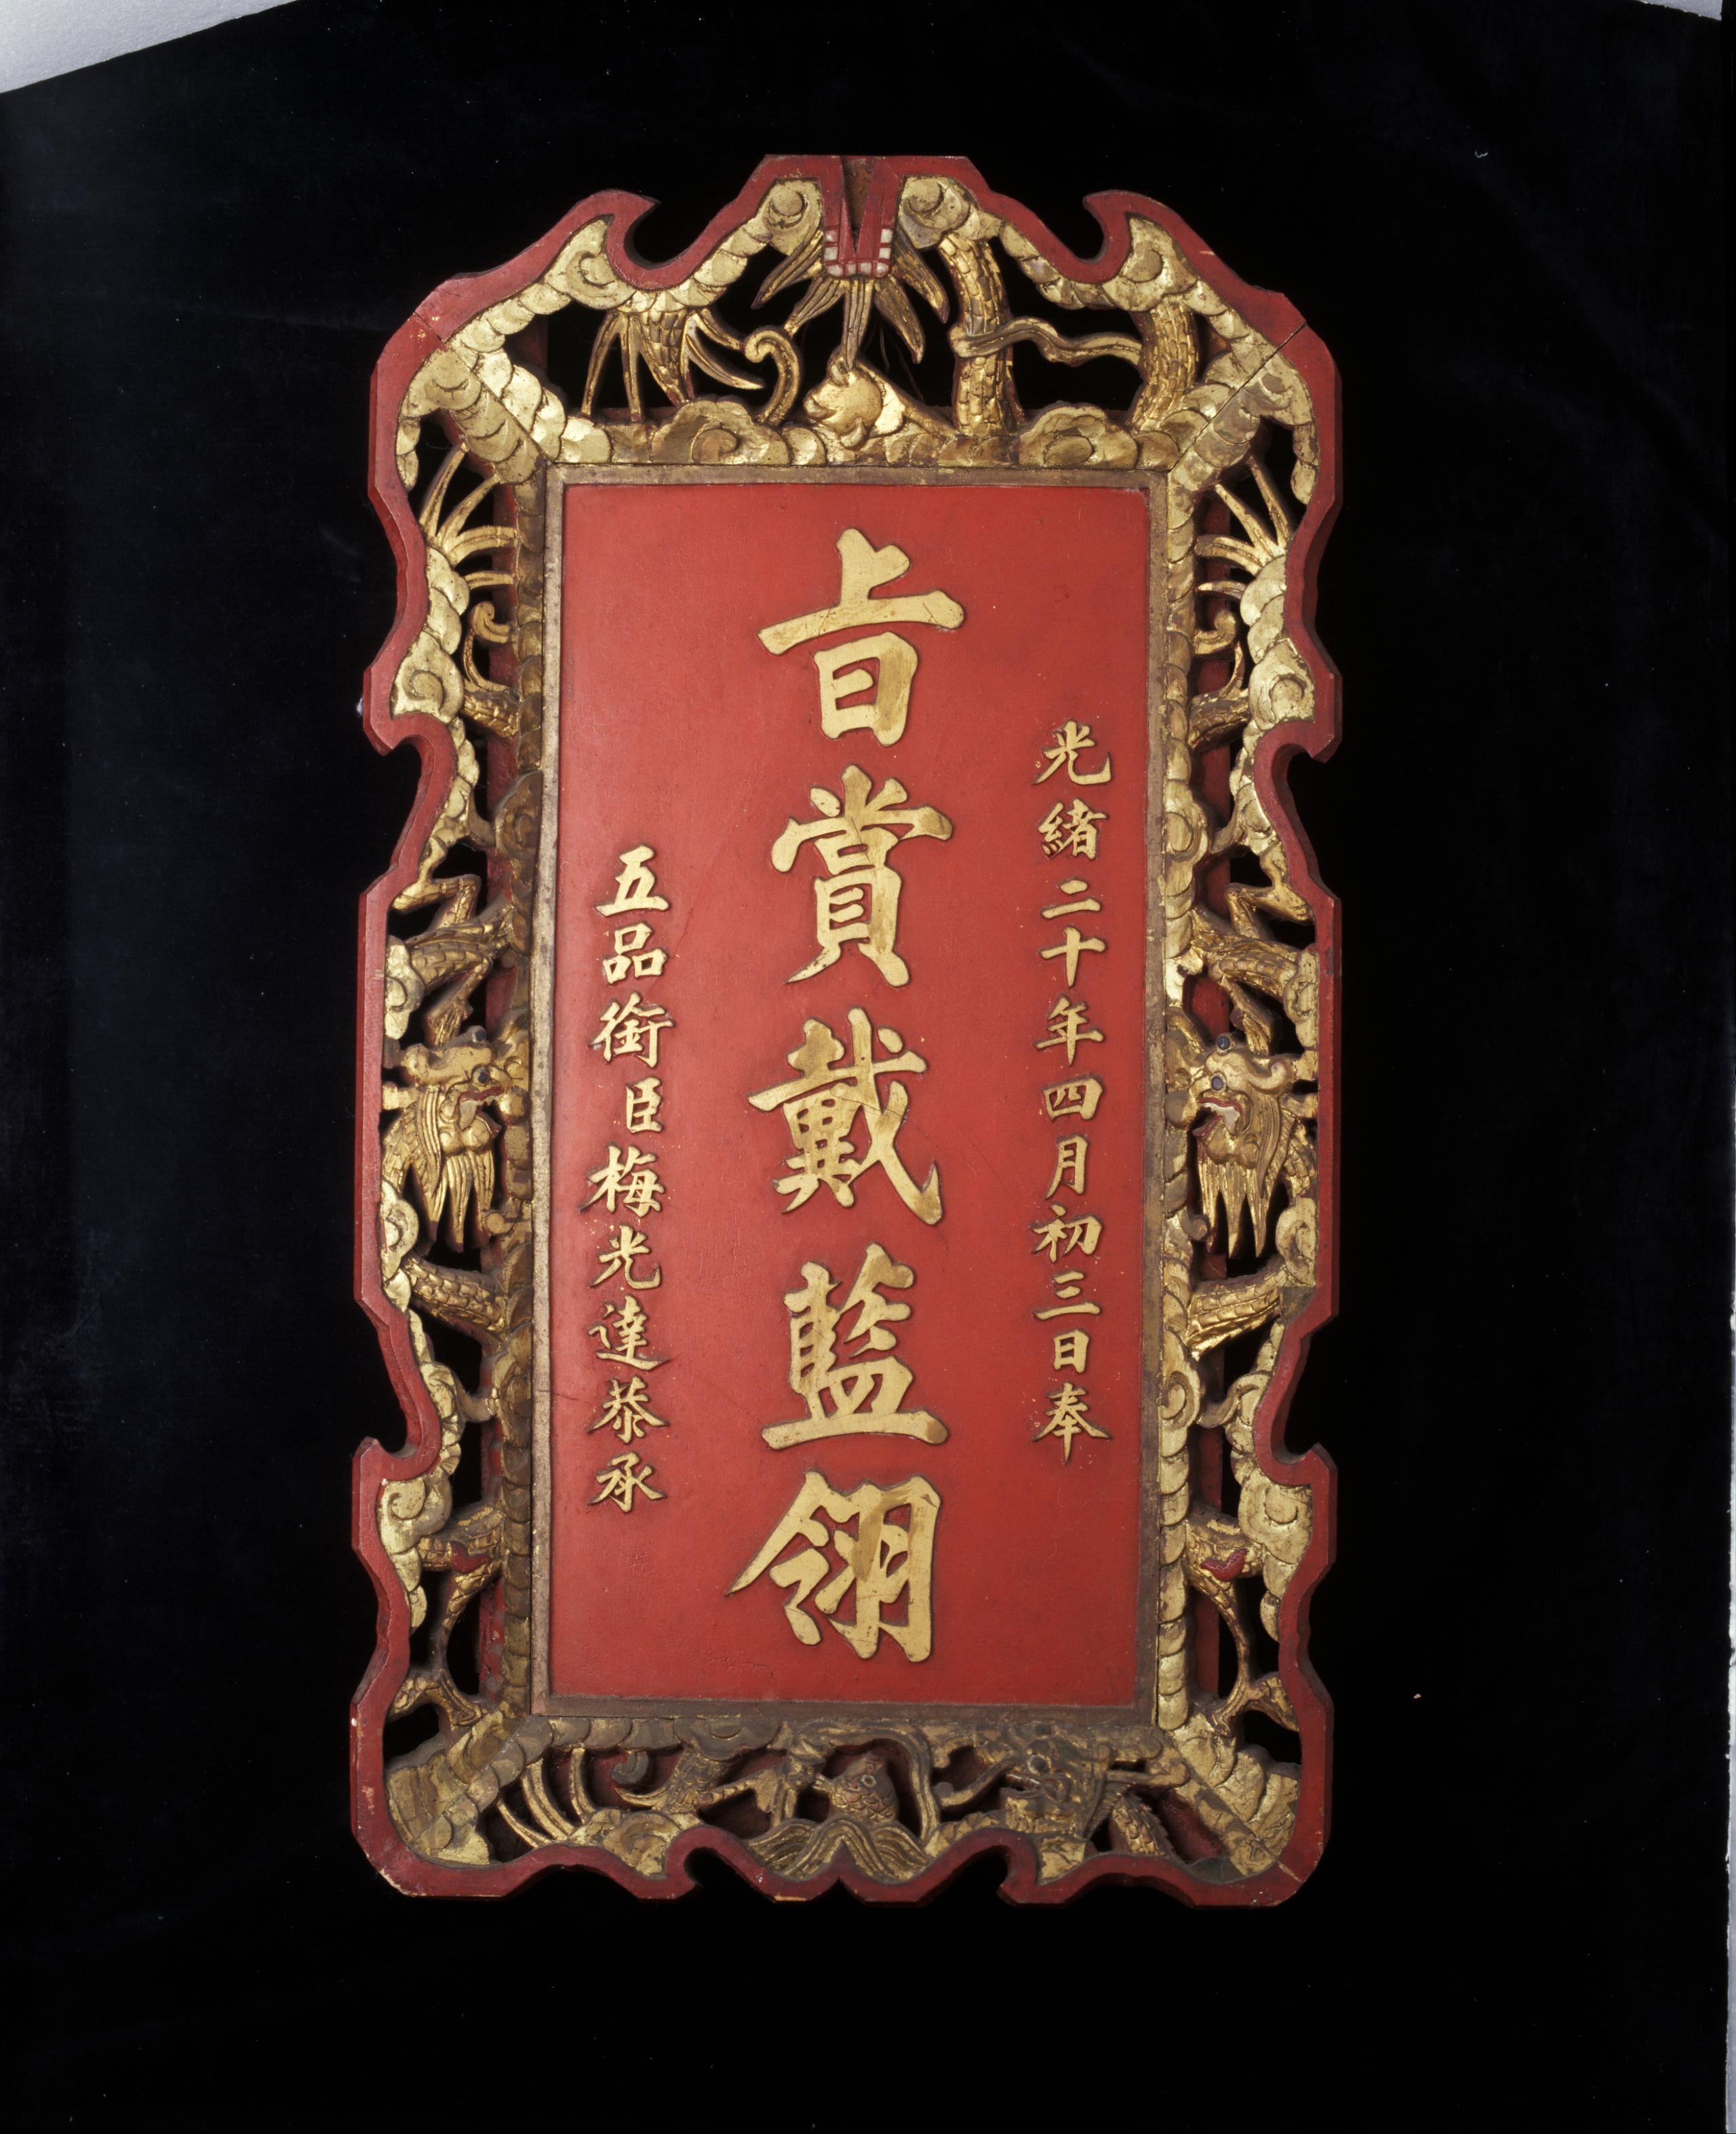 光緒二十年四月初三日奉
旨賞戴藍翎
五品銜臣梅光達恭承